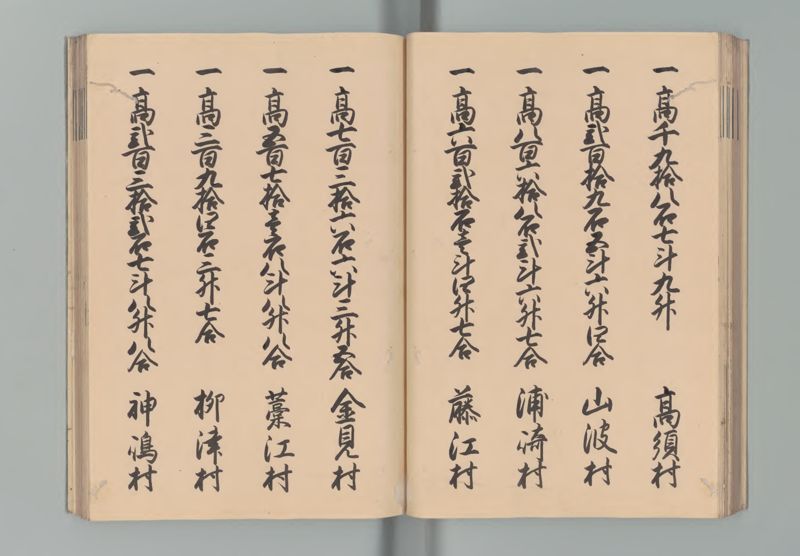 一 高千九拾八石七斗九升 高須村
一 高弐百拾九石五斗六升四合 山波村
一 高八百六拾八石弐斗六升七合 浦崎村
一 高六百弐拾石壱斗四升七合 藤江村
一 高七百三拾六石六斗三升五合 金見村
一 高五百七拾壱石八斗八升八合 藁江村
一 高三百九拾四石三升七合 柳津村
一 高弐百三拾弐石七斗八升八合 神嶋村